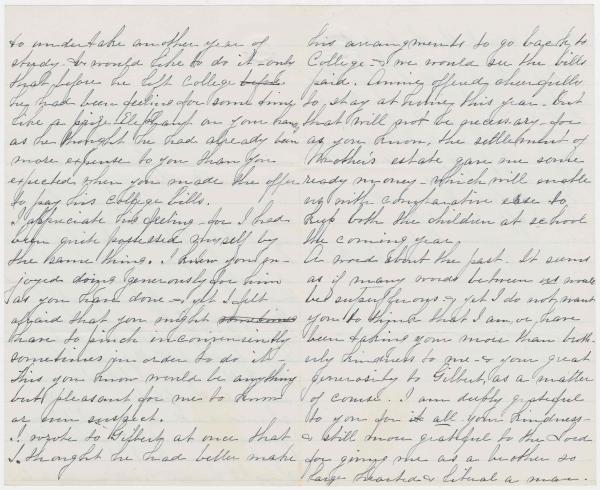 to undertake another year of
study - & would like to do it - only
that before he left College before
he had been feeling for some time
like a prize Elephant on your hands
as he thought he had already been
more expense to you than you
expected when you made the offer
to pay his College bills.
I appreciate his feeling - for I had
been quite possessed myself by
the same thing. I knew you en-
joyed doing generously for him
as you have done - & yet I felt
afraid that you might sometimes
have to pinch inconveniently
sometimes in order to do it -
This you know would be anything
but pleasant for me to know
or even suspect.
I wrote to Gilbert at once that
I thought he had better make
his arrangements to go back to
College - & we would see the bills
paid. Annie offered cheerfully
to stay at home this year - But
that will not be necessary - for
as you know, the settlement of
Mother's estate gave me some
ready money - which will enable
us with comparative ease to
keep both the children at school
the coming year.
A word about the past. It seems
as if many words between us would
be superfluous - & yet I do not want
you to think that I am, or have
been taking your more than broth-
erly kindness to me - & your great
generosity to Gilbert, as a matter
of course. I am deeply grateful
to you for it all your kindness -
& still more grateful to the Lord
for giving me as a brother so
large hearted & liberal a man.